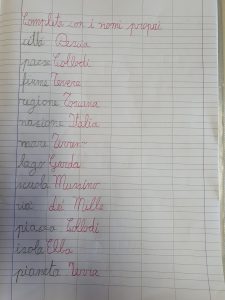 Completa con i nomi propri
città Pescia
paese Collodi
fiume Tevere
regione Toscana
nazione Italia
mare Tirreno
lago Garda
scuola Mussino
via dei Mille
piazza Collodi
isola Elba
pianeta Terra